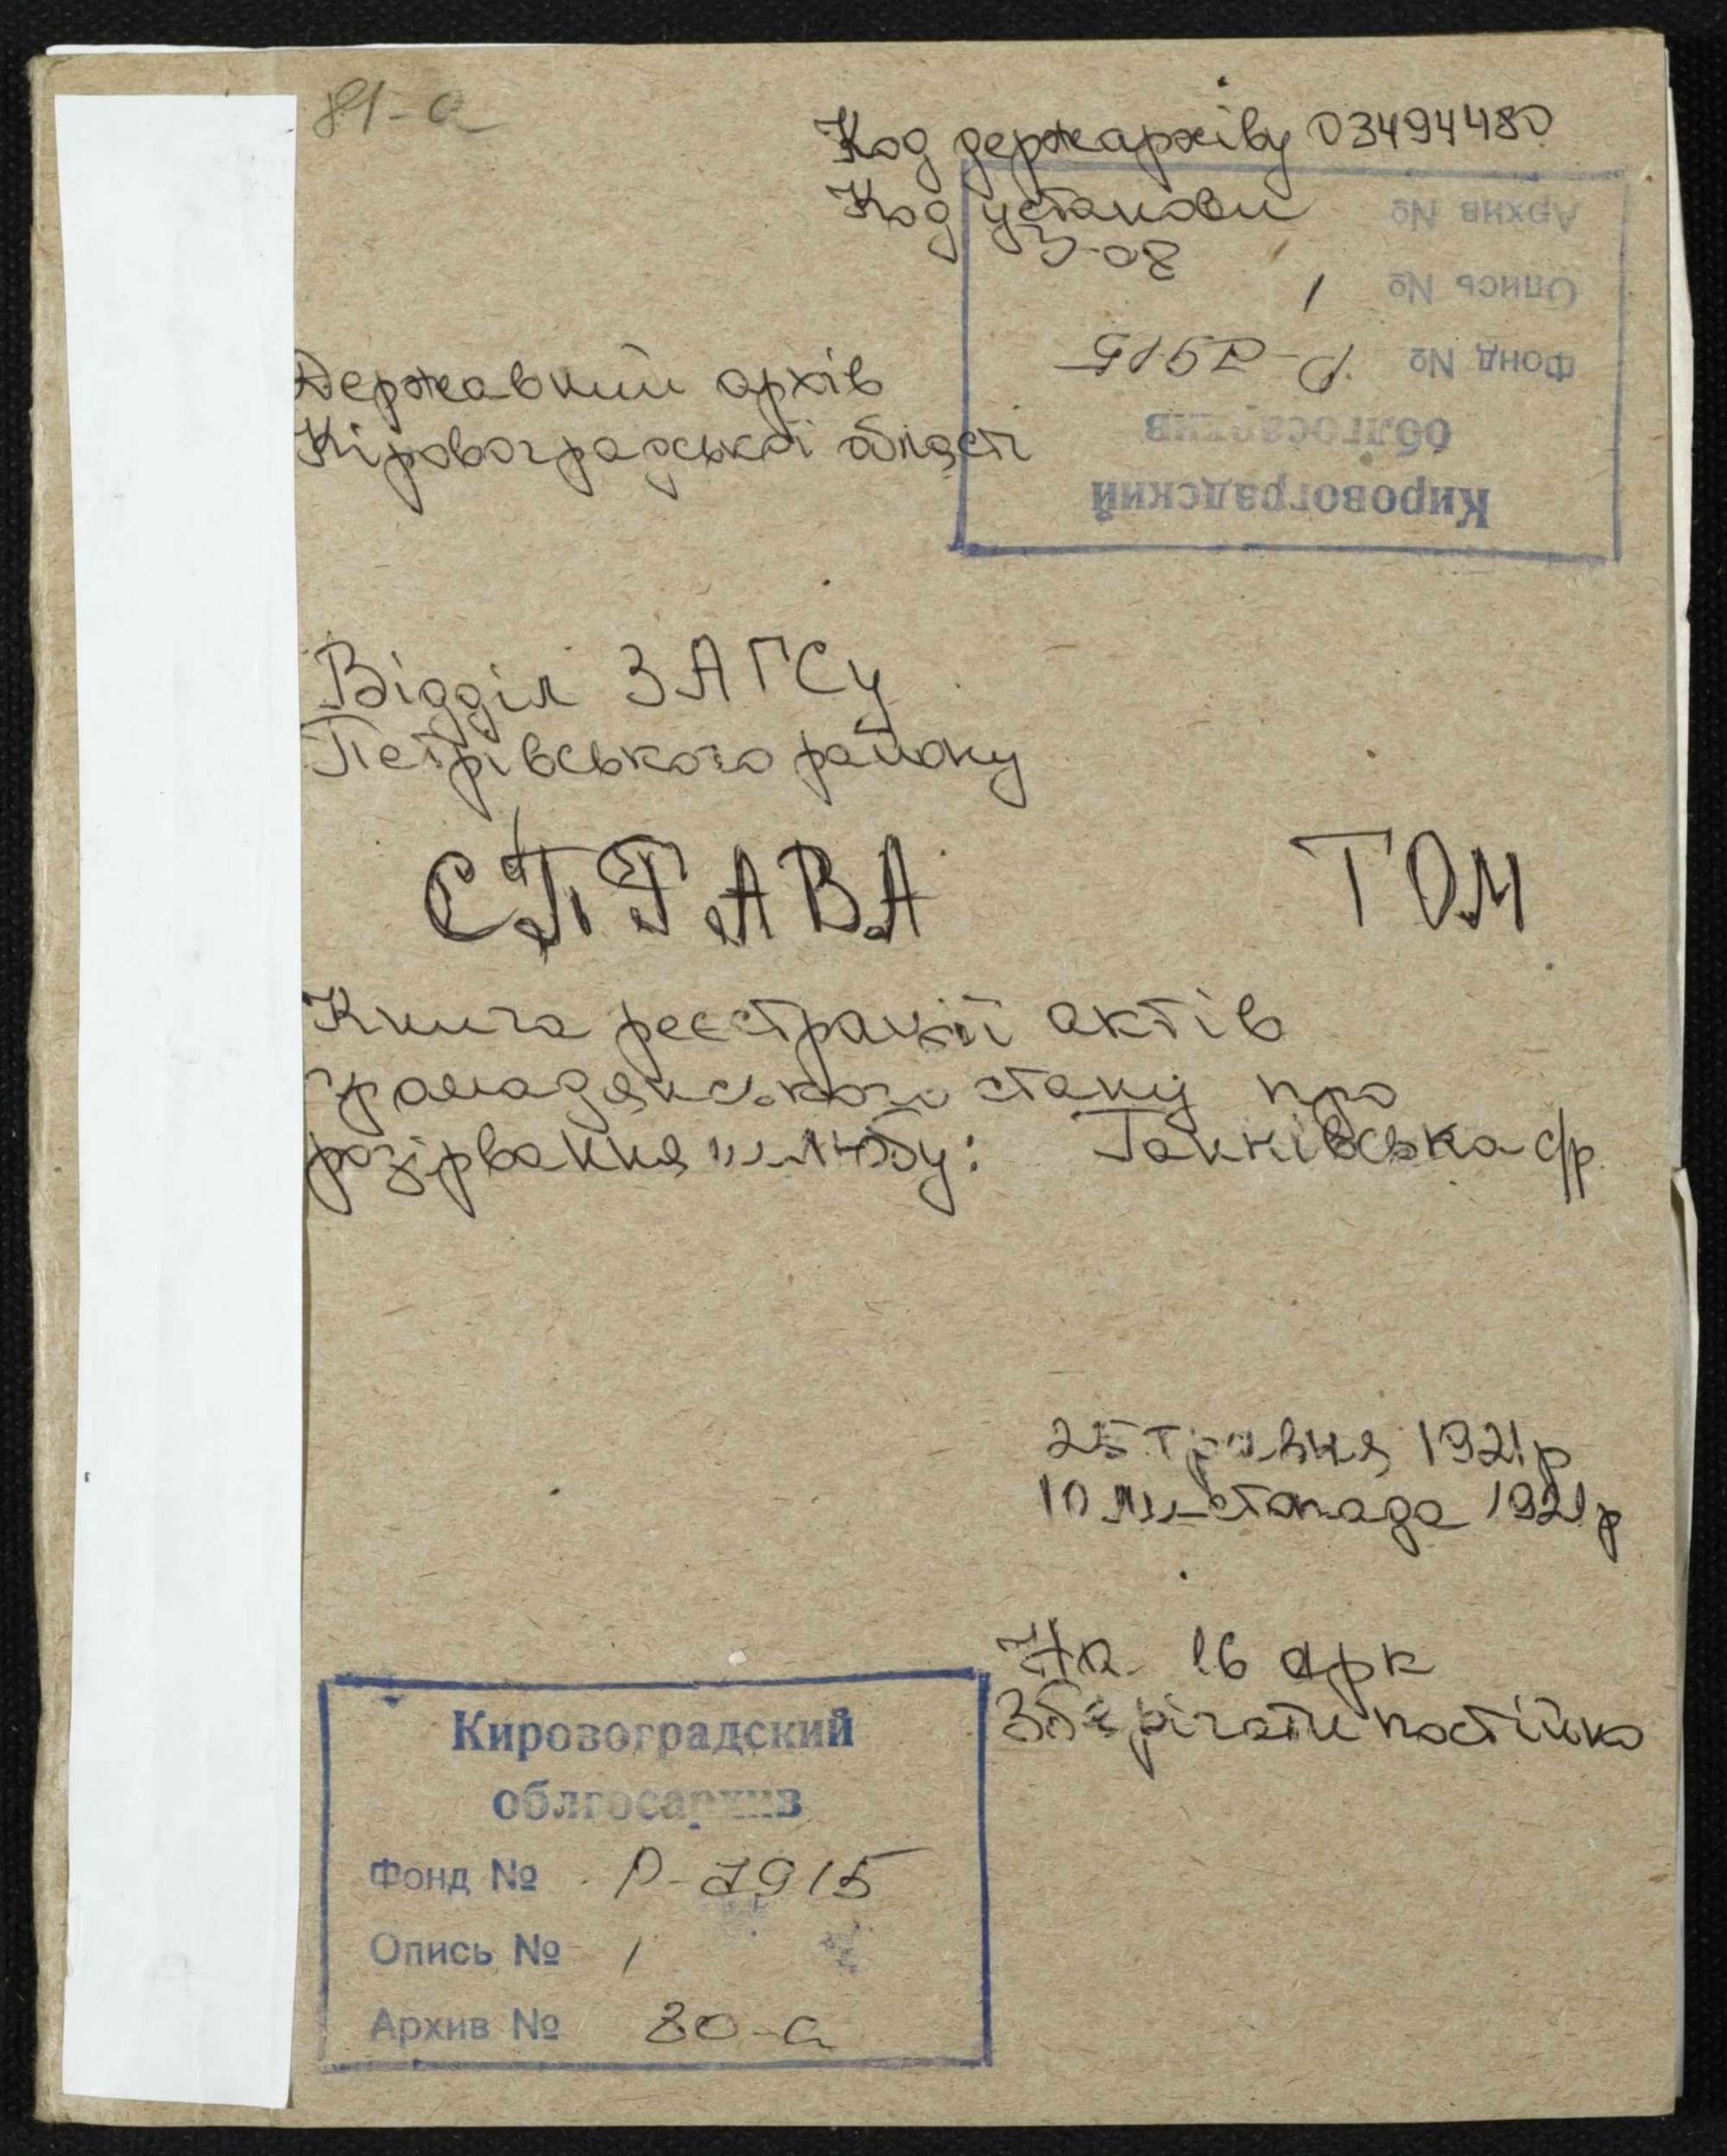 81-а
Код держархіву 03494480
Код установи
Кировоградский
облгосархив
Фонд № Р-7915
Опись № 1
Архив № 80-а
Державний архів
Кіровоградської області
Відділ ЗАГСу
Петрівського району
СПРАВА ТОМ
Книга реєстрації актів
громадянського стану про
розірвання шлюбу: Ганнівська с/р
25 травня 1921р
10 листопада 1921р
На 16 арк
Зберігати постійно
Кировоградский
облгосархив
Фонд № Р-7915
Опись № 1
Архив № 80-а